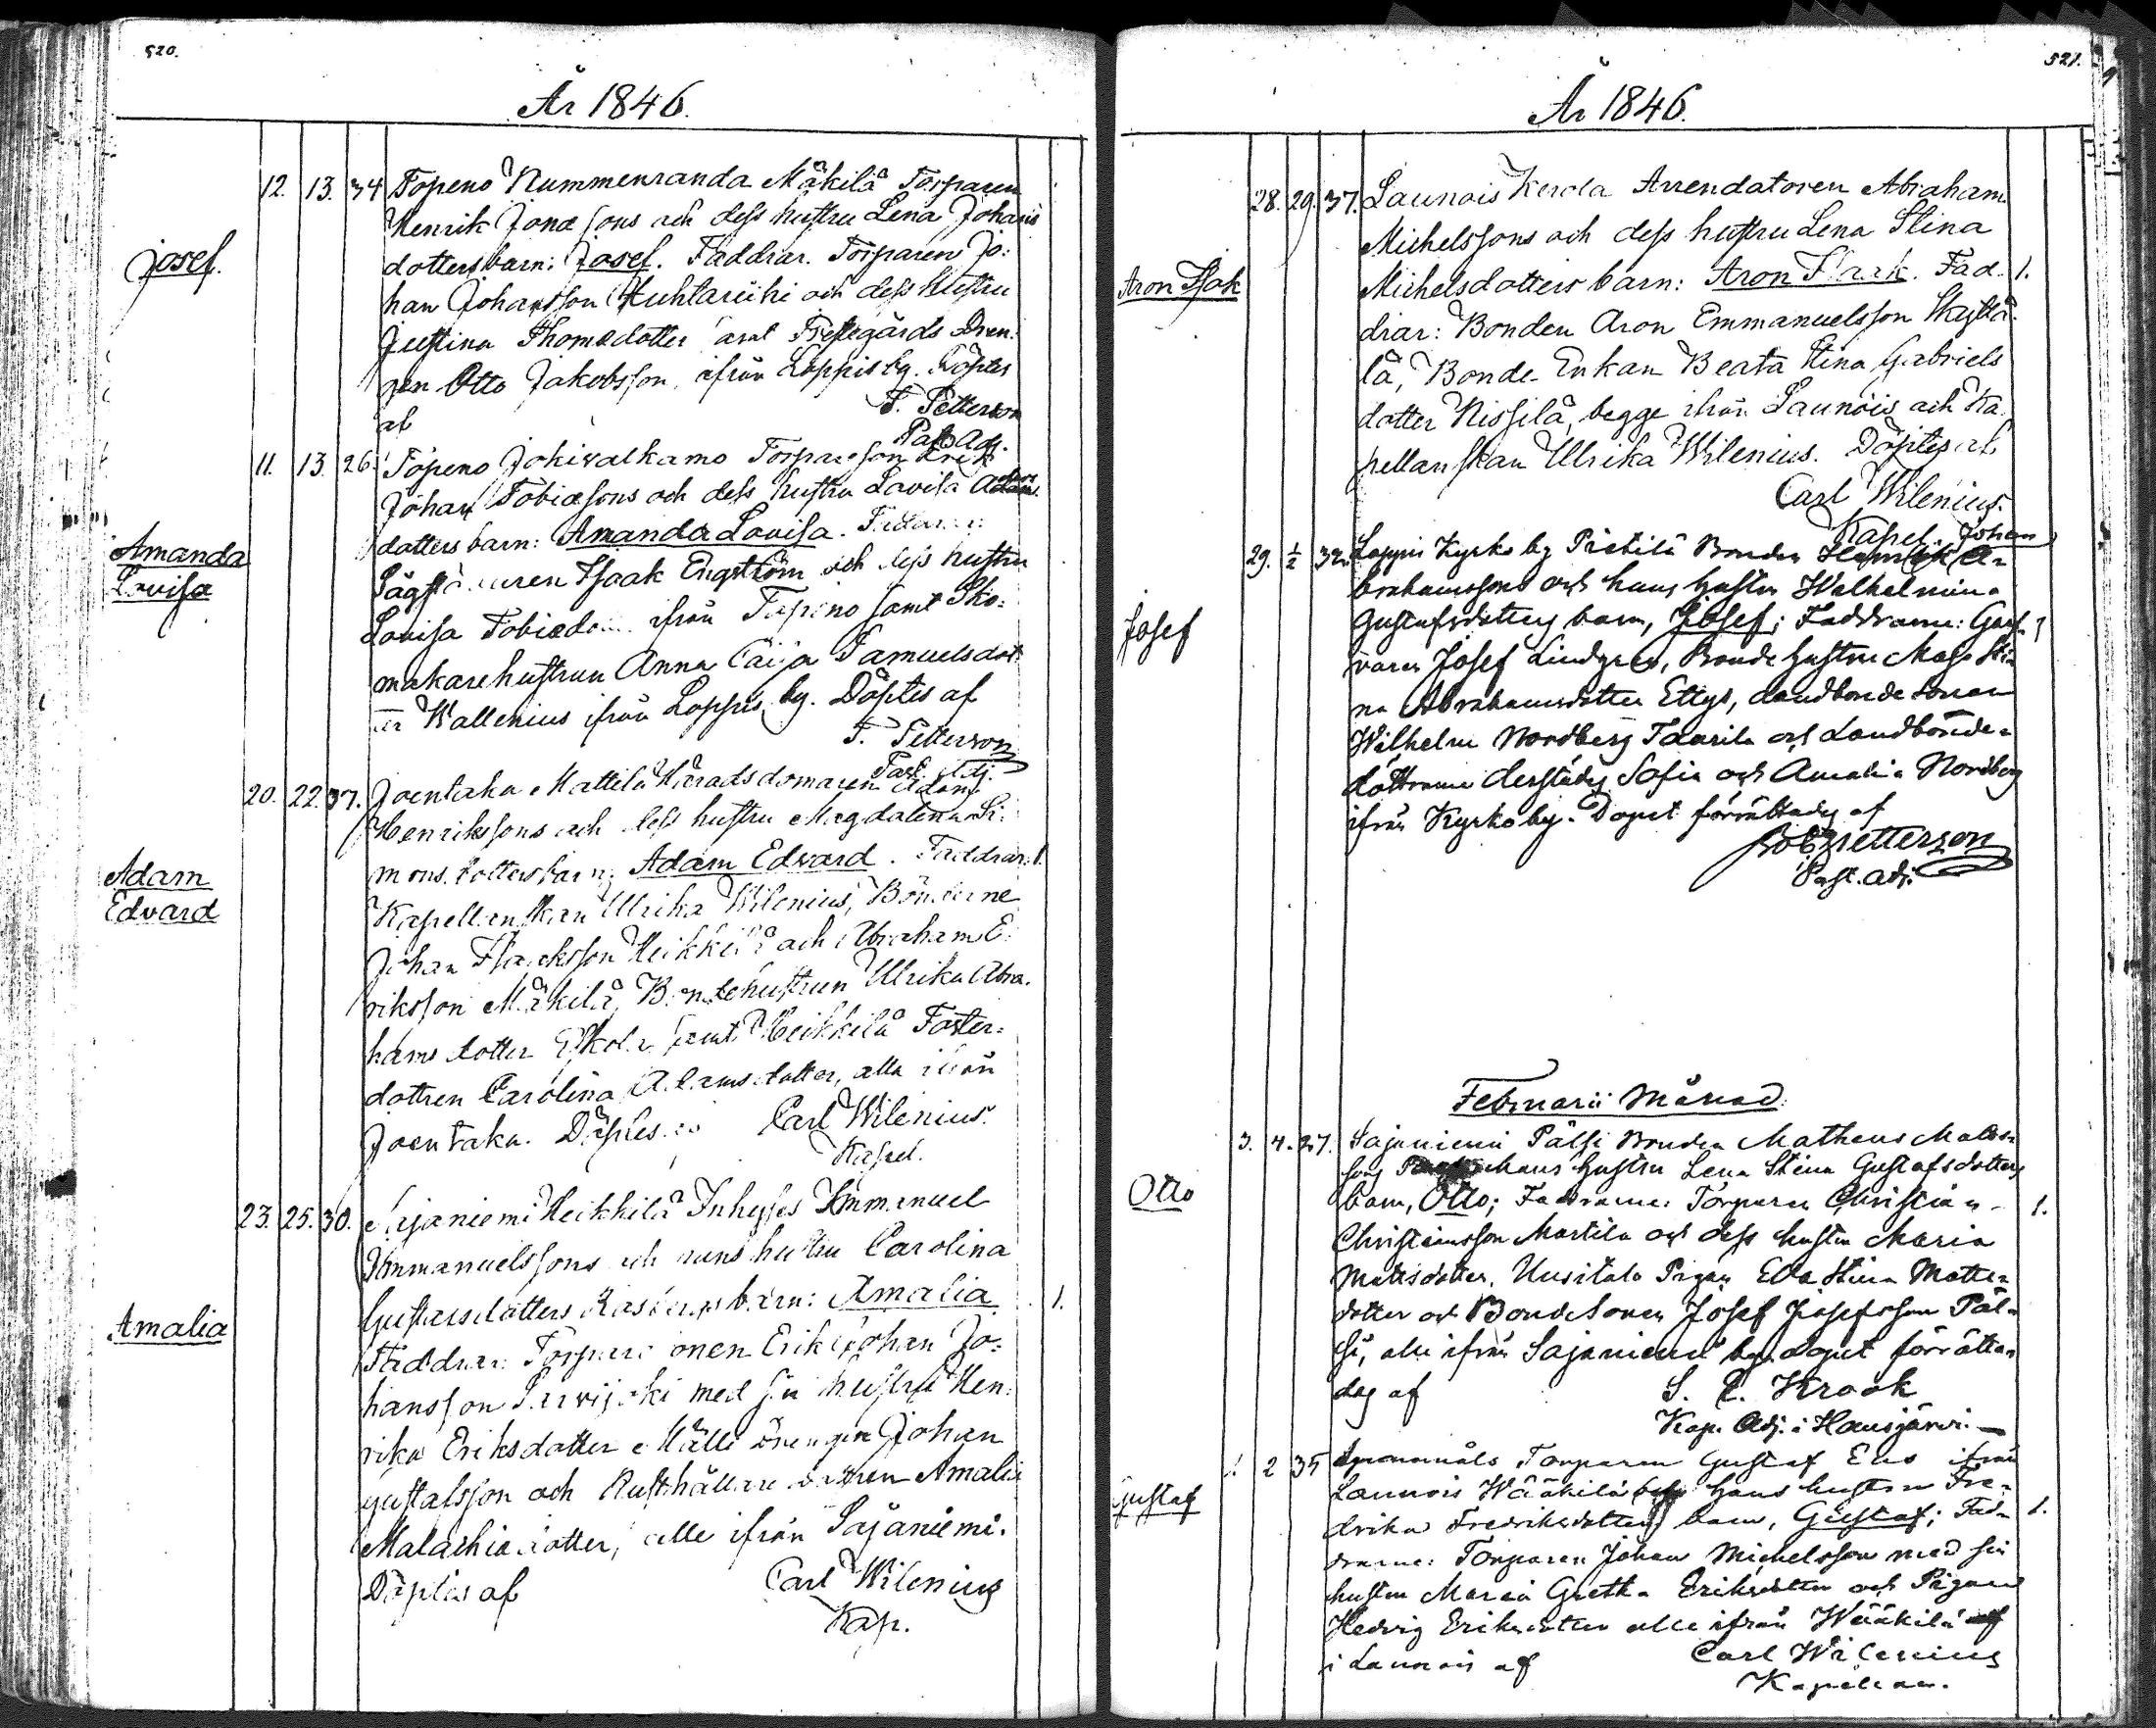 520.
År 1846.
Josef.
12. 13. 34 Topeno Nummenranda Mäkilä Torparen
Henrik Jonæsons och dess hustru Lena Johans
dotters barn: Josef. Faddrar. Torparen Jo:
han Johansson och dess hustru
Justina Thomædotter samt Prestegårds Dren:
gen Otto Jakobsson, ifrån Loppis by. Döptes
af F. Petterson
Past. Adj.
Amanda
Lovisa
11. 13. 26. Topeno Jokivalkamo Torpareson Erik
Johan Tobiæsons och dess hustru Lovisa Adams
dotters barn: Amanda Lovisa. Faddrar:
Isaak Engström och dess hustru
Lovisa ifrån Topeno samt Sko:
makarehustrun Anna Caisa Samuelsdot
ter Wallenius ifrån Loppis by. Döptes af
F. Petterson
Past. Adj.
Adam
Edvard
20. 22. 37. Joentaka Mattila Häradsdomaren Adam
Henrikssons och dess hustru Magdalena Si:
monsdotters barn: Adam Edvard. Faddrar: 1.
Kapellanskan Ulrika Wilenius, Bönderne
Johan Isacksson Heikkilä och Abraham E:
riksson Mäkilä, Bondehustrun Ulrika Abra.
hamsdotter Eskola samt Heikkilä Foster:
dottren Carolina Adamsdotter, alla ifrån
Joentaka. Döptes af Carl Wilenius.
Kapel.
Amalia
23. 25. 30. Sajaniemi Heikkilä Inhyses Immanuel
Immanuelssons och hans hustru Carolina
Gustafsdotters barn: Amalia 1.
Faddrar: Erik Johan Jo:
hansson med sin hustru Hen:
rika Eriksdotter Johan
Gustafsson och Rusthållare dottren Amalia
Malachiædotter, alle ifrån Sajaniemi.
Döptes af Carl Wilenius
Kap.
521.
År 1846.
Aron Isak
28. 29. 37. Launois Kerola Arrendatoren Abraham
Michelssons och dess hustru Lena Stina
Michelsdotters barn: Aron Isaak. Fad. 1.
drar: Bonden Aron Emmanuelsson
lä, Bonde-Enkan Beata Stina Gabriels
dotter Nissilä, begge ifrån Launois och Ka.
pellanskan Ulrika Wilenius. Döptes af
Carl Wilenius.
Kapel.
Josef
29. 1/2 32. Loppis Kyrko by Pietilä Bonden Johan A-
brahamssons och hans hustru Wilhelmina
Gustafsdotters barn, Josef; Faddrarne: Garf-
varen Josef Lindgren, Bonde hustru Maja Sti
na Abrahamsdotter Ettys, Landbonde sonen
Wilhelm Nordberg och Landbonde-
döttrarne derstädes Sofia och Amalia Nordberg
ifrån Kyrkoby. Dopet förrättades af
Petterson
Past. adj.
Februarii Månad.
Otto
3. 4. 27. Sajaniemi Pälsi Bonden Matheus Matts-
sons hans hustru Lena Stina Gustafsdotters
barn, Otto; Faddrarne: Torparen Christian 1.
Christiansson Martila och dess hustru Maria
Mattsdotter, Uusitalo Pigan Eva Stina Matts-
dotter och Bondesonen Josef Josefsson Päl-
si, alle ifrån Sajaniemi by. Dopet förrätta-
des af S. E. Krook
Kap. Adj. i Hausjärvi.
Gustaf
1. 2 35 Torparen Gustaf Elis ifrån
Launois Wääkilä hans hustru Fre-
drika Fredriksdotters barn, Gustaf; Fad- 1.
drarne: Torparen Johan Michelsson med sin
hustru Maria Gretha Eriksdotter och Pigan
Hedvig Eriksdotter alle ifrån Wääkilä
i Launois af Carl Wilenius
Kapellan.